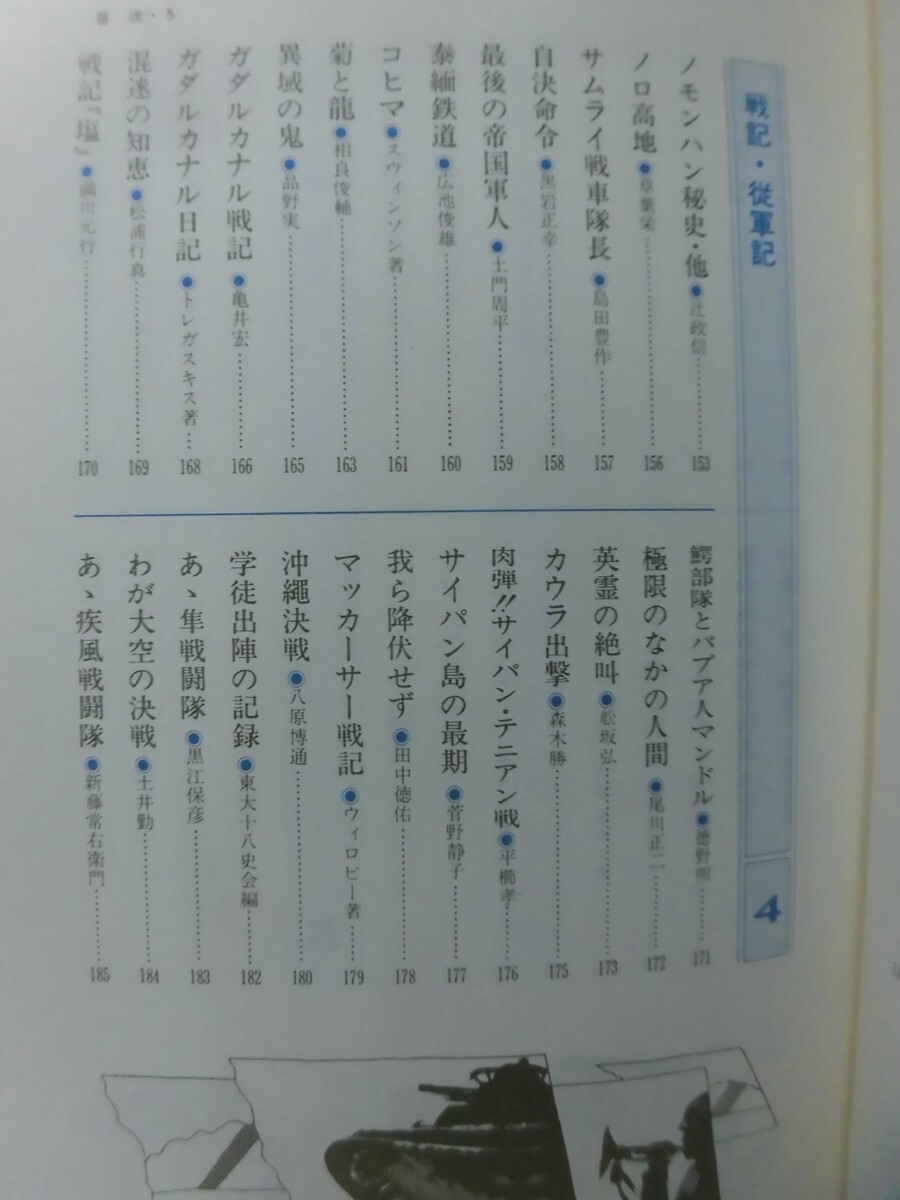 目次・5
戦記・従軍記
4
ノモンハン秘史・他●辻政信………153
ノロ高地●草葉栄………156
サムライ戦車隊長●島田豊作………157
自決命令●黒岩正幸………158
最後の帝国軍人●土門周平………159
泰緬鉄道●広池俊雄………160
コヒマ●スウィンソン著………161
菊と龍●相良俊輔………163
異域の鬼●品野実………165
ガダルカナル戦記●亀井宏………166
ガダルカナル日記●トレガスキス著…168
混迷の知恵●松浦行真………169
戦記『塩』●満川元行………170
鰐部隊とパプア人マンドル●徳野明………171
極限のなかの人間●尾川正二………172
英霊の絶叫●舩坂弘………173
カウラ出撃●森木勝………175
肉弾!!サイパン・テニアン戦●平櫛孝………176
サイパン島の最期●菅野静子………177
我ら降伏せず●田中徳祐………178
マッカーサー戦記●ウィロビー著……179
沖縄決戦●八原博通………180
学徒出陣の記録●東大十八史会編………182
あゝ隼戦闘隊●黒江保彦………183
わが大空の決戦●土井勤………184
あゝ疾風戦闘隊●新藤常右衛門………185